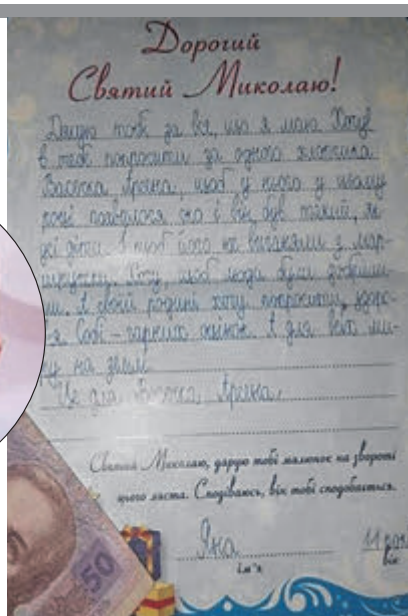 Дорогий
Святий Миколаю!
Дякую тобі за все, що я маю. Хочу
в тебе попросити за одного хлопчика
Васюка Арсена, щоб у нього у цьому
році появилося око і він був такий, як
всі діти. І щоб його не виганяли з мар-
шрутки. Хочу, щоб люди були добріши-
ми. А своїй родині хочу попросити здоро-
в'я. Собі – гарних оцінок. А для всіх ми-
ру на землі.
Це для Васюка Арсена.
Святий Миколаю, дарую тобі малюнок на звороті
цього листа. Сподіваюсь, він тобі сподобається.
Яна
ім'я
11 рок
вік
50